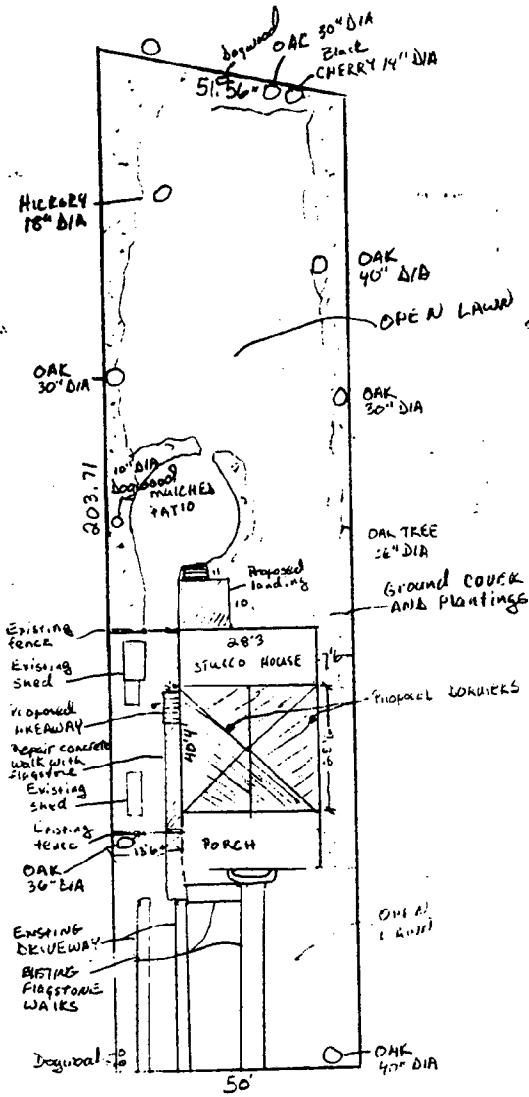 Dogwood
OAC 30" DIA
Black
CHERRY 14" DIA
51.56"
HICKORY
18" DIA
OAK
40" DIA
OPEN LAWN
OAK
30" DIA
OAK
30" DIA
10" DIA
Dogwood
MULCHED
PATIO
203.71
OAK TREE
DIA
Proposed
landing
11
10.
Ground COVER
AND Plantings
Existing
fence
28'3
STUCCO HOUSE
7'6
Existing
shed
PROPOSED
Repair concrete
walk with
flagstone
40'4
Existing
shed
Existing
fence
13'6"
PORCH
OAK
36" DIA
EXISTING
DRIVEWAY
EXISTING
FLAGSTONE
WALKS
OPEN
Dogwood
OAK
40" DIA
50'